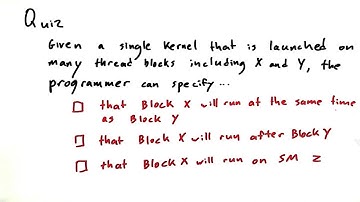 Quiz
Given a single kernel that is launched on
many thread blocks including X and Y, the
programmer can specify...
that Block X will run at the same time
as Block Y
that Block X will run after Block Y
that Block X will run on SM Z